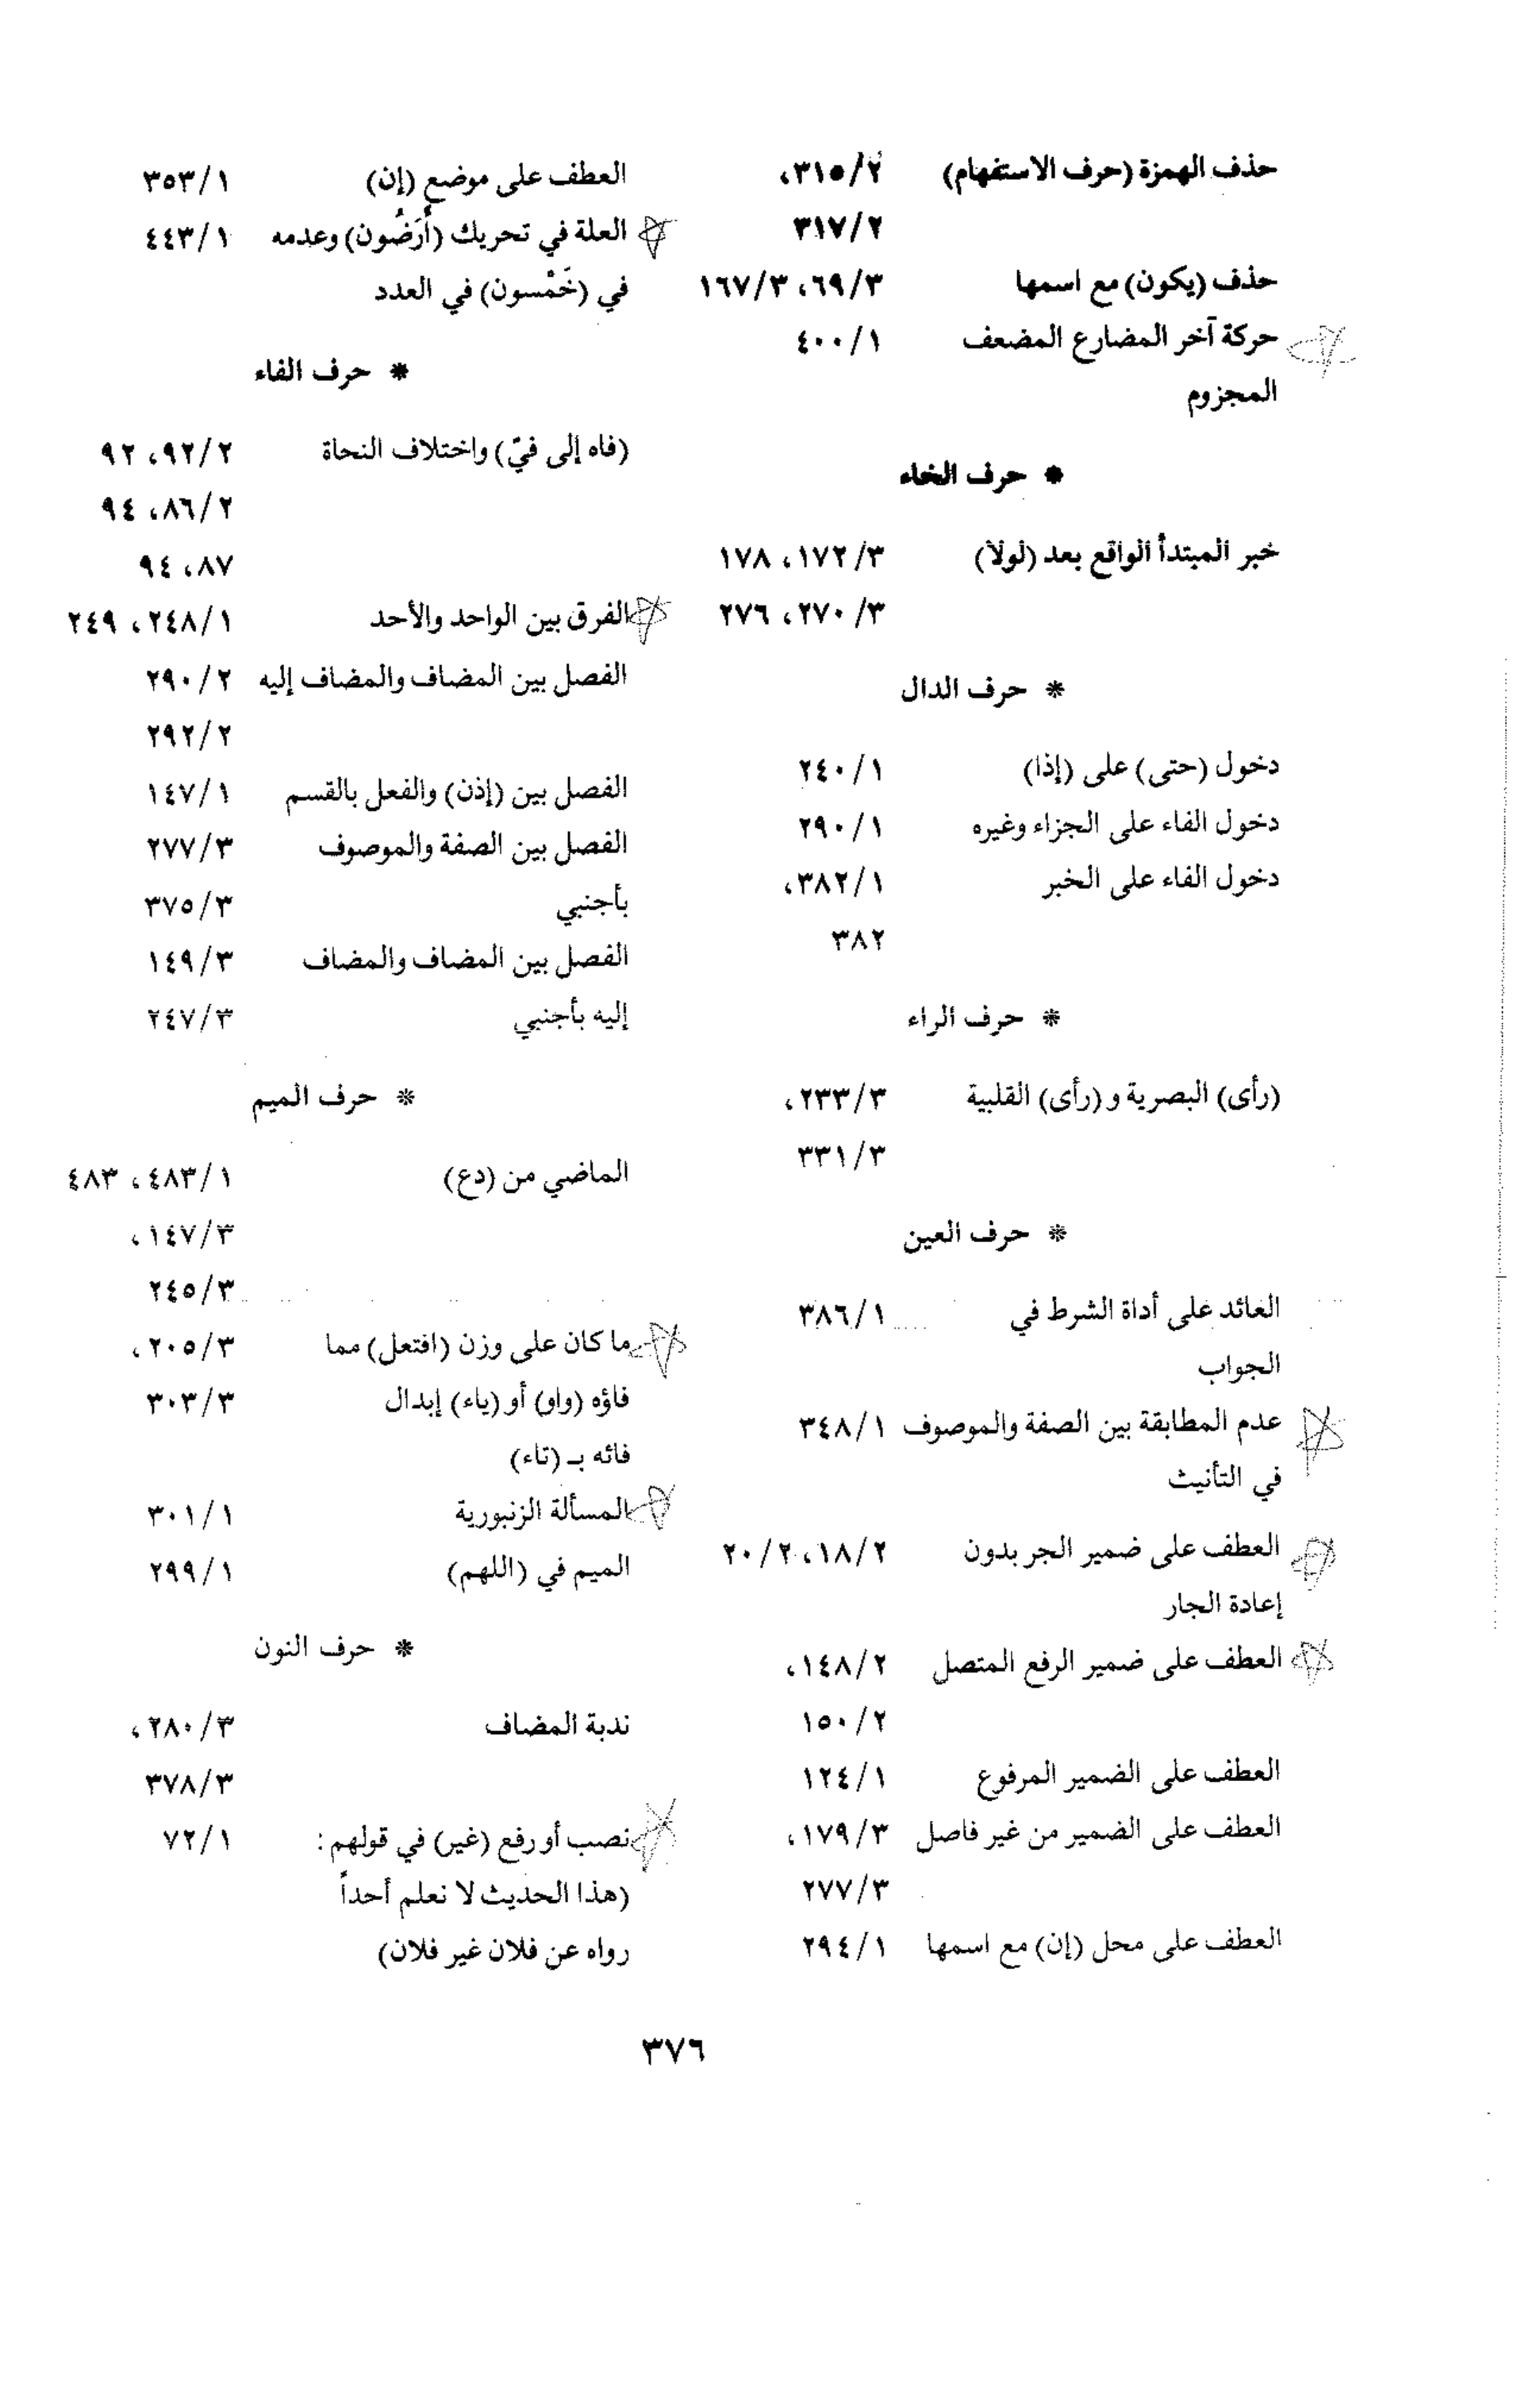 حذف الهمزة (حرف الاستفهام) ٣١٥/٢،
٣١٧/٢
حذف (يكون) مع اسمها ٦٩/٣، ١٦٧/٣
حركة آخر المضارع المضعف ٤٠٠/١
المجزوم
* حرف الخاء
خبر المبتدأ الواقع بعد (لولا) ١٧٢/٣، ١٧٨
٢٧٠/٣، ٢٧٦
* حرف الدال
دخول (حتى) على (إذا) ٢٤٠/١
دخول الفاء على الجزاء وغيره ٢٩٠/١
دخول الفاء على الخبر ٣٨٢/١،
٣٨٢
* حرف الراء
(رأى) البصرية و(رأى) القلبية ٢٣٣/٣،
٣٣١/٣
* حرف العين
العائد على أداة الشرط في ٣٨٦/١
الجواب
عدم المطابقة بين الصفة والموصوف ٣٤٨/١
في التأنيث
العطف على ضمير الجر بدون ١٨/٢، ٢٠/٢
إعادة الجار
العطف على ضمير الرفع المتصل ١٤٨/٢،
١٥٠/٢
العطف على الضمير المرفوع ١٢٤/١
العطف على الضمير من غير فاصل ١٧٩/٣،
٢٧٧/٣
العطف على محل (إن) مع اسمها ٢٩٤/١
العطف على موضع (إن) ٣٥٣/١
العلة في تحريك (أَرَضُون) وعدمه ٤٤٣/١
في (خَمْسون) في العدد
* حرف الفاء
(فاه إلى فيّ) واختلاف النحاة ٩٢/٢، ٩٢
٨٦/٢، ٩٤
٨٧، ٩٤
الفرق بين الواحد والأحد ٢٤٨/١، ٢٤٩
الفصل بين المضاف والمضاف إليه ٢٩٠/٢
٢٩٢/٢
الفصل بين (إذن) والفعل بالقسم ١٤٧/١
الفصل بين الصفة والموصوف ٢٧٧/٣
بأجنبي ٣٧٥/٣
الفصل بين المضاف والمضاف ١٤٩/٣
إليه بأجنبي ٢٤٧/٣
* حرف الميم
الماضي من (دع) ٤٨٣/١، ٤٨٣
١٤٧/٣،
٢٤٥/٣
ما كان على وزن (افتعل) مما ٢٠٥/٣،
فاؤه (واو) أو (ياء) إبدال ٣٠٣/٣
فائه بـ (تاء)
المسألة الزنبورية ٣٠١/١
الميم في (اللهم) ٢٩٩/١
* حرف النون
ندبة المضاف ٢٨٠/٣،
٣٧٨/٣
نصب أو رفع (غير) في قولهم: ٧٢/١
(هذا الحديث لا نعلم أحداً
رواه عن فلان غير فلان)
٣٧٦